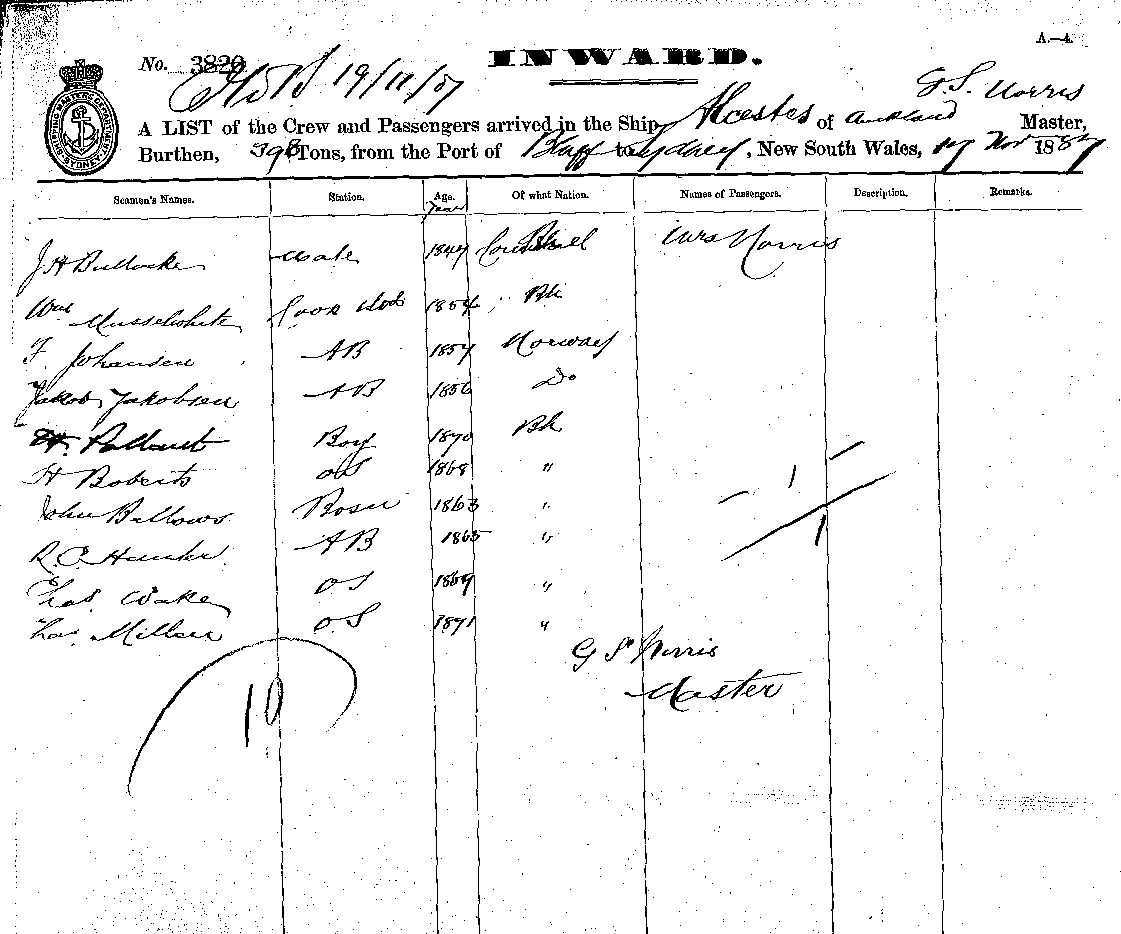 A.—4.
No. 3820 INWARD.
19/11/87
G.S. Norris
A LIST of the Crew and Passengers arrived in the Ship Alcestes of Auckland Master,
Burthen, 395 Tons, from the Port of Bluff to Sydney, New South Wales, 17 Nov 1887
Seamen's Names. Station. Age. Of what Nation. Names of Passengers. Description. Remarks.
Year
J H Bullocke Mate 1847 Bh Mrs Norris
Wm Musselwhite Cook 1854 Bh
F. Johansen AB 1857 Norway
Jakob Jakobsen AB 1856 Do
H. Boy 1870 Bh
H Roberts OS 1868 "
John Bellows Bosn 1863 "
R. C. AB 1865 "
Chas. Wake OS 1869 "
Miller OS 1871 "
G S Norris
Master
10